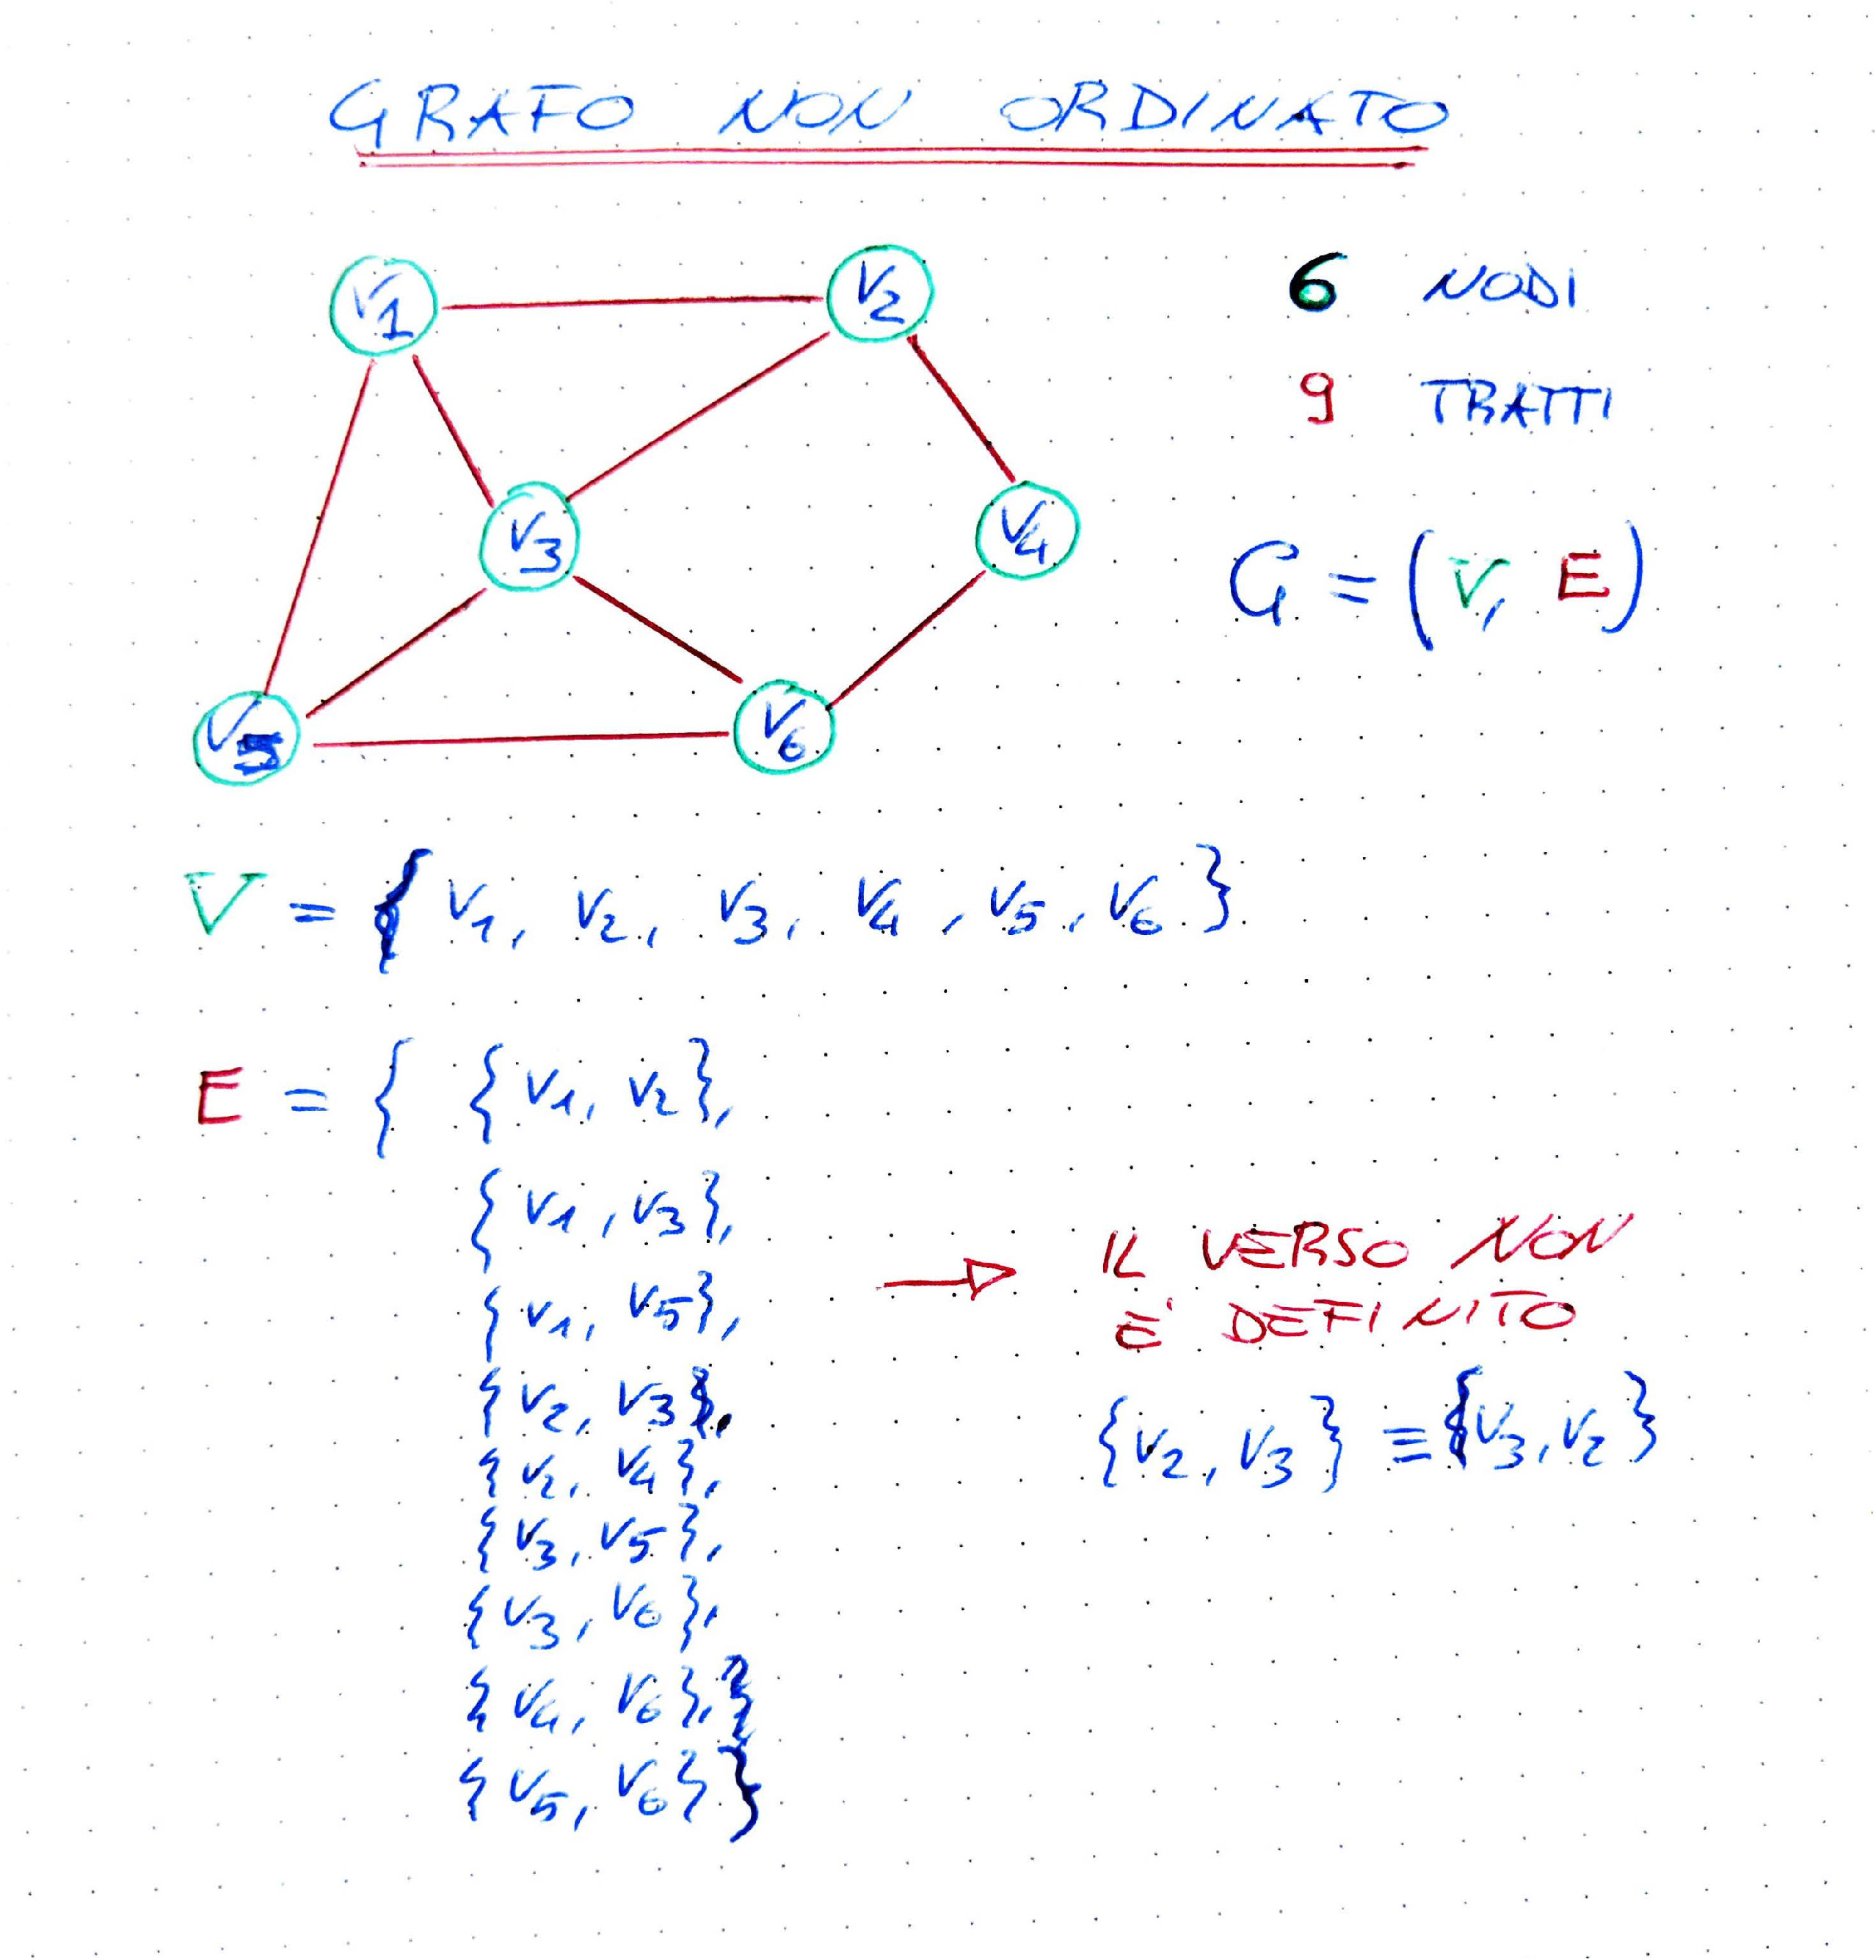 GRAFO NON ORDINATO
V1
V2
6 NODI
9 TRATTI
V3
V4
G = (V, E)
V5
V6
V = { V1, V2, V3, V4, V5, V6 }
E = { {V1, V2},
{V1, V3},
{V1, V5},
{V2, V3},
{V2, V4},
{V3, V5},
{V3, V6},
{V4, V6},}
{V5, V6}}
→ IL VERSO NON
E' DEFINITO
{V2, V3} ≡ {V3, V2}